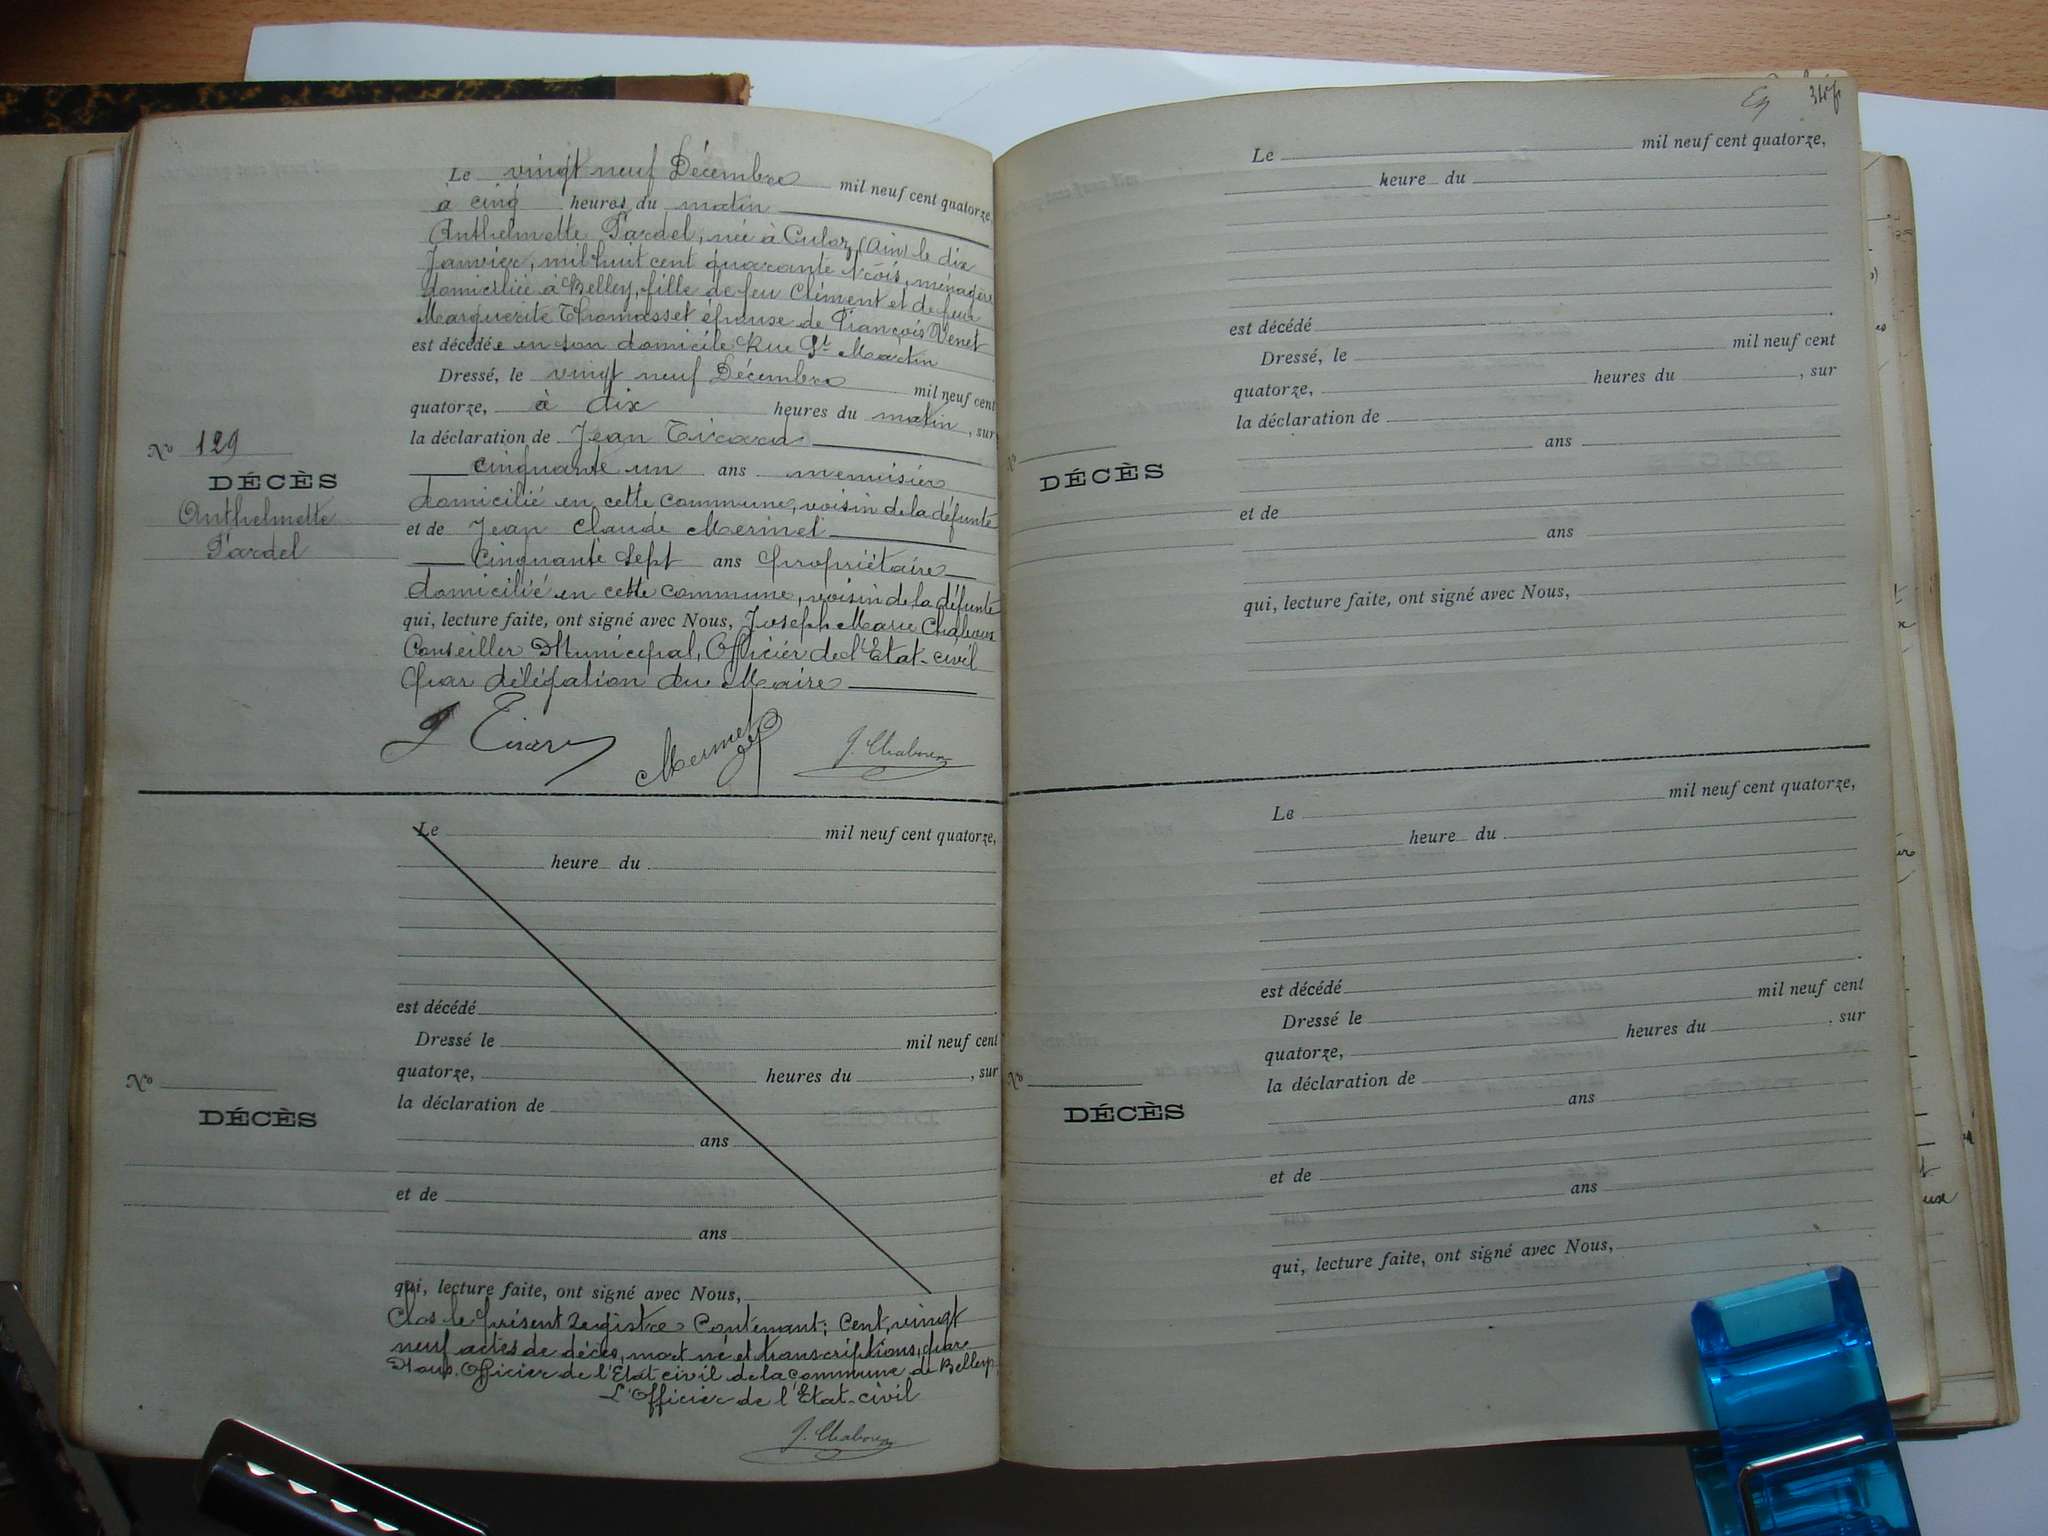 Le vingt neuf Décembre mil neuf cent quatorze,
à cinq heures du matin
Anthelmette Pardel, née à Culoz (Ain) le dix
Janvier, mil huit cent quarante trois, ménagère
domiciliée à Belley, fille de feu Clément et de feue
Marguerite Thomasset épouse de François Venet
est décédée en son domicile Rue St Martin
Dressé, le vingt neuf Décembre mil neuf cent
quatorze, à dix heures du matin, sur
la déclaration de Jean
cinquante un ans menuisier
domicilié en cette commune, voisin de la défunte
et de Jean Claude
cinquante sept ans propriétaire
domicilié en cette commune, voisin de la défunte
qui, lecture faite, ont signé avec Nous, Joseph Marie
Conseiller Municipal, Officier de l'Etat-civil
par délégation du Maire
No 129
DÉCÈS
Anthelmette
Pardel
Le mil neuf cent quatorze,
heure du
est décédé
Dressé le mil neuf cent
quatorze, heures du , sur
la déclaration de
ans
et de
ans
qui, lecture faite, ont signé avec Nous,
No
DÉCÈS
Clos le présent Registre Contenant: Cent vingt
neuf actes de décès, mort né et transcriptions, par
Nous Officier de l'Etat civil de la commune de Belley
L'Officier de l'Etat-civil
Le mil neuf cent quatorze,
heure du
est décédé
Dressé, le mil neuf cent
quatorze, heures du , sur
la déclaration de
ans
et de
ans
qui, lecture faite, ont signé avec Nous,
No
DÉCÈS
Le mil neuf cent quatorze,
heure du
est décédé
Dressé le mil neuf cent
quatorze, heures du , sur
la déclaration de
ans
et de
ans
qui, lecture faite, ont signé avec Nous,
No
DÉCÈS